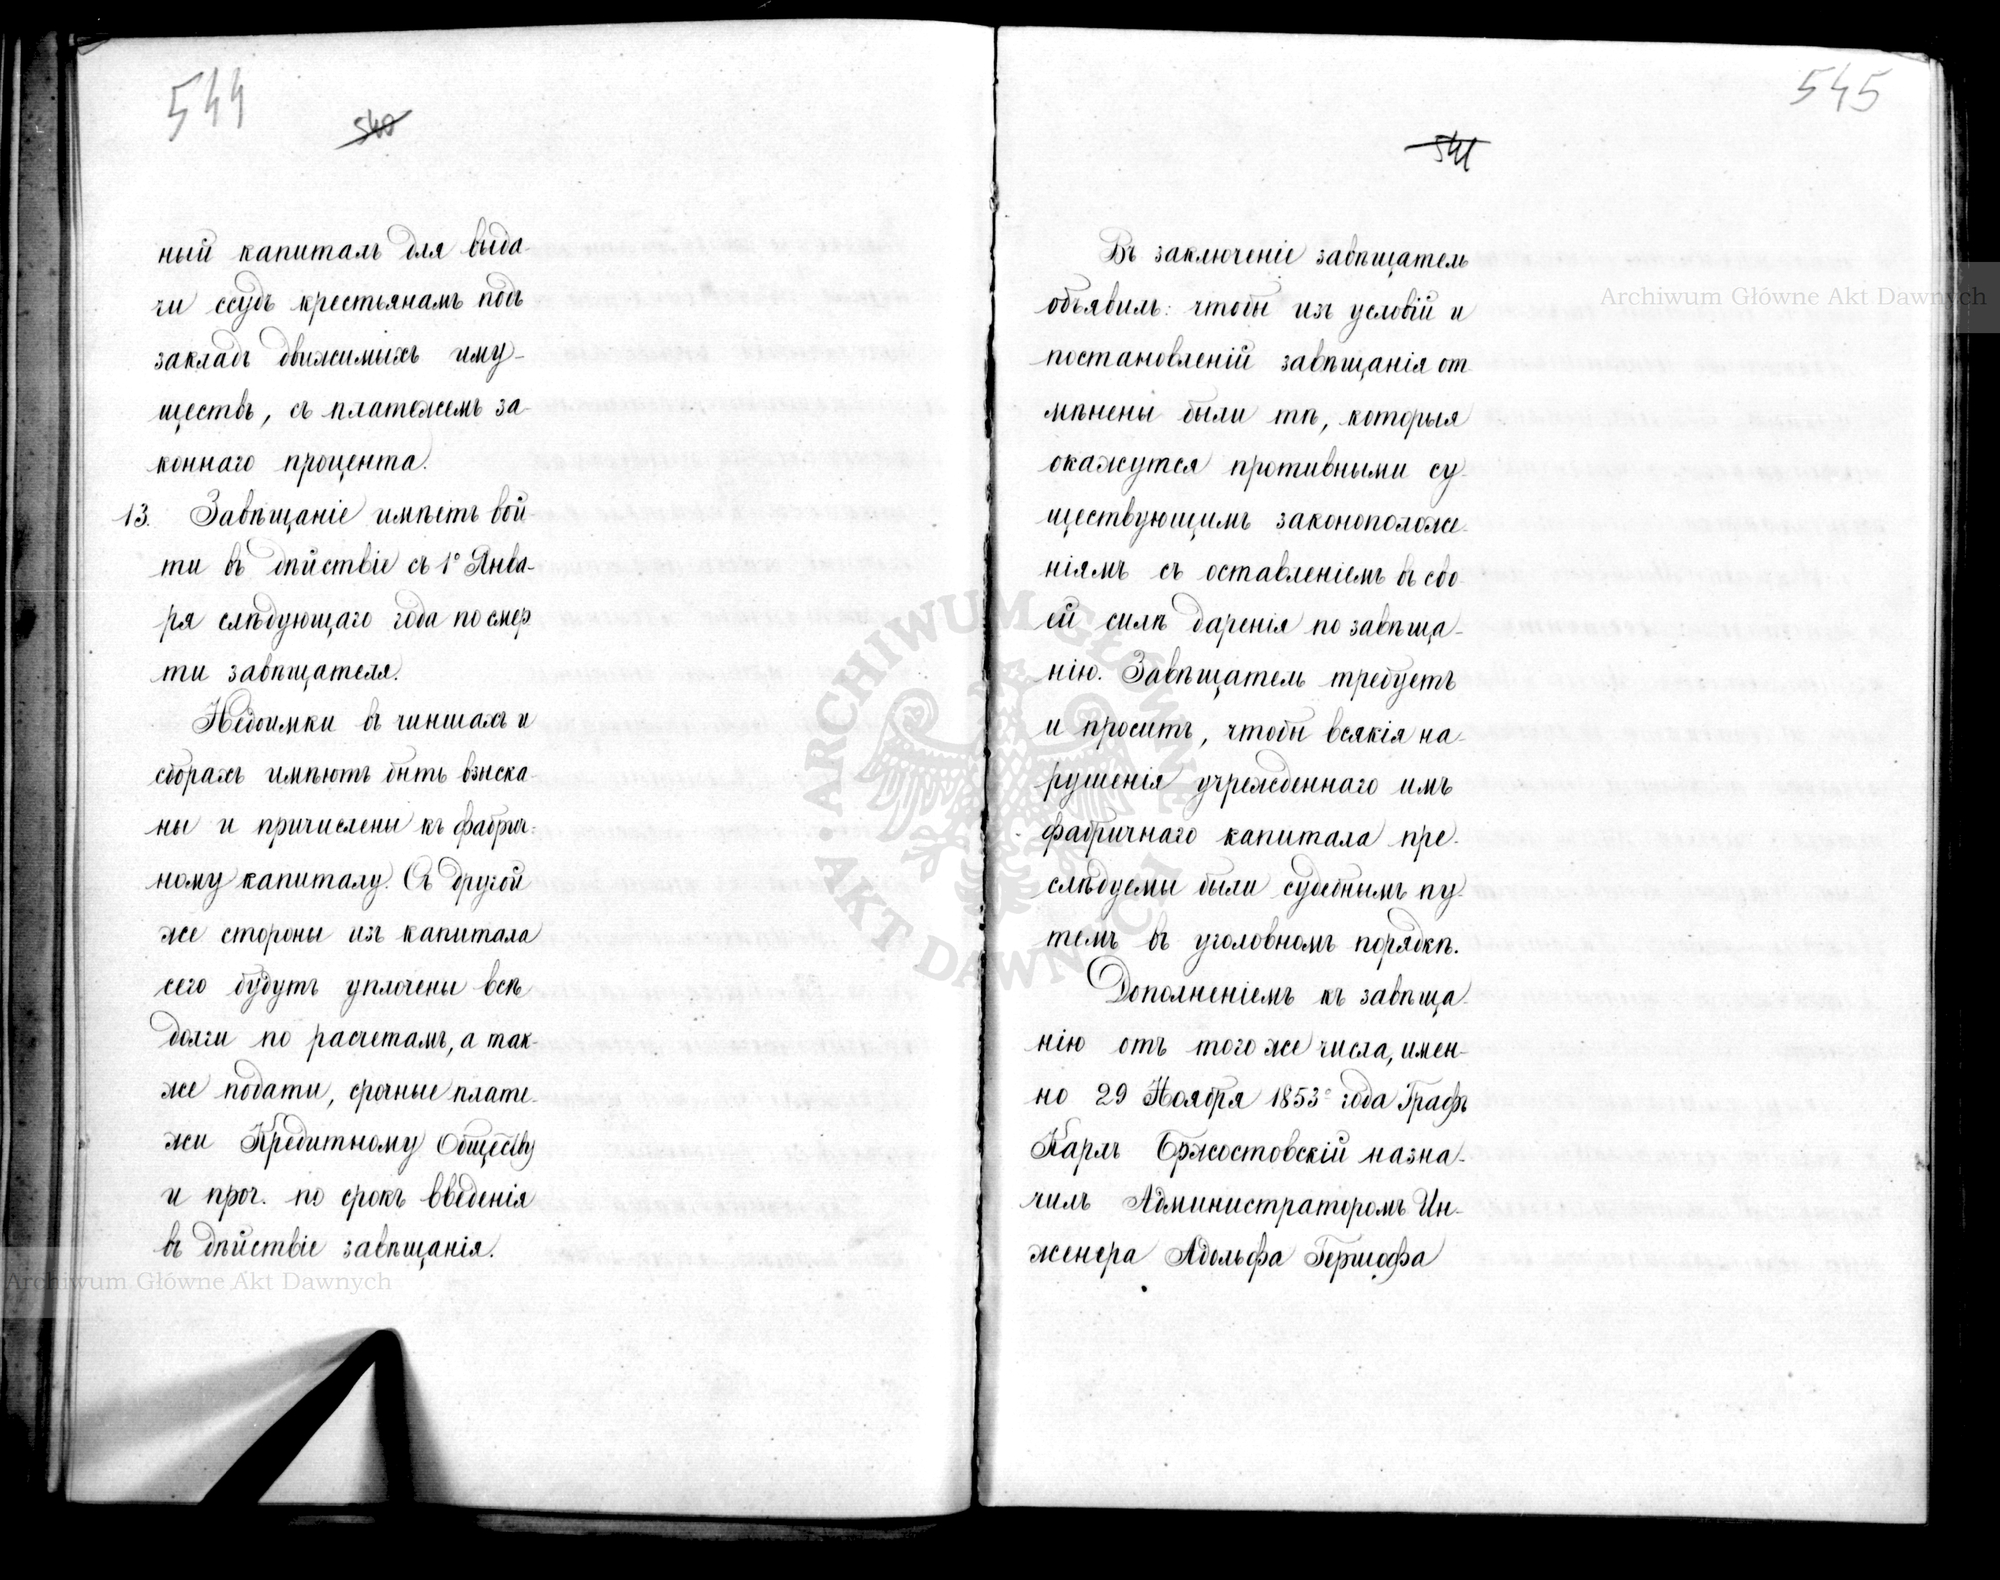 544
540
ный капиталъ для выда-
чи ссудъ крестьянамъ подъ
закладъ движимыхъ иму-
ществъ, съ платежемъ за-
коннаго процента.
13. Завѣщаніе имѣетъ вой
ти въ дѣйствіе съ 1º Янва-
ря слѣдующаго года по смер
ти завѣщателя.
Недоимки въ чиншахъ и
сборахъ имѣютъ быть взыска-
ны и причислены къ фабрич-
ному капиталу. Съ другой
же стороны изъ капитала
сего будутъ уплочены всѣ
долги по расчетамъ, а так-
же подати, срочные плате-
жи Кредитному Обществу
и проч. по срокъ введенія
въ дѣйствіе завѣщанія.
545
541
Въ заключеніе завѣщатель
объявилъ: чтобы изъ условій и
постановленій завѣщанія от
мѣнены были тѣ, которыя
окажутся противными су-
ществующимъ законоположе-
ніямъ съ оставленіемъ въ сво-
ей силѣ даренія по завѣща-
нію. Завѣщатель требуетъ
и проситъ, чтобы всякія на-
рушенія учрежденнаго имъ
фабричнаго капитала пре-
слѣдуемы были судебнымъ пу-
темъ въ уголовномъ порядкѣ.
Дополненіемъ къ завѣща-
нію отъ того же числа, имен-
но 29 Ноября 1853º года Графъ
Карлъ Бржостовскій назна-
чилъ Администраторомъ Ин-
женера Адольфа Гершофа
Archiwum Główne Akt Dawnych
Archiwum Główne Akt Dawnych
ARCHIWUM GŁÓWNE AKT DAWNYCH